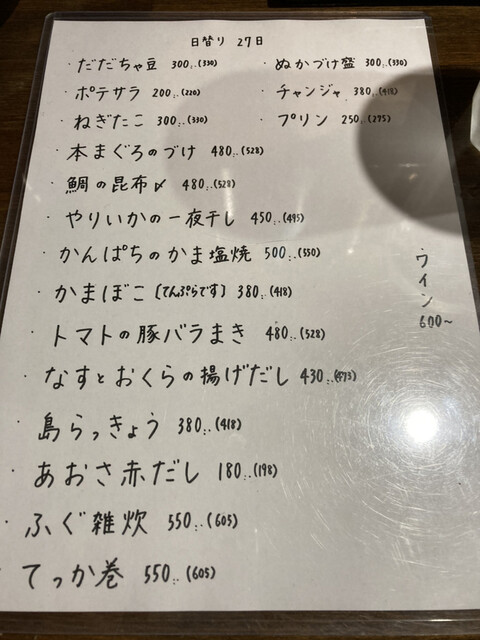 日替り 27日
・だだちゃ豆 300.-(330)
・ポテサラ 200.-(220)
・ねぎたこ 300.-(330)
・本まぐろのづけ 480.-(528)
・鯛の昆布〆 480.-(528)
・やりいかの一夜干し 450.-(495)
・かんぱちのかま塩焼 500.-(550)
・かまぼこ〔てんぷらです〕 380.-(418)
・トマトの豚バラまき 480.-(528)
・なすとおくらの揚げだし 430.-(473)
・島らっきょう 380.-(418)
・あおさ赤だし 180.-(198)
・ふぐ雑炊 550.-(605)
・てっか巻 550.-(605)
・ぬかづけ盛 300.-(330)
・チャンジャ 380.-(418)
・プリン 250.-(275)
・ワイン
600~